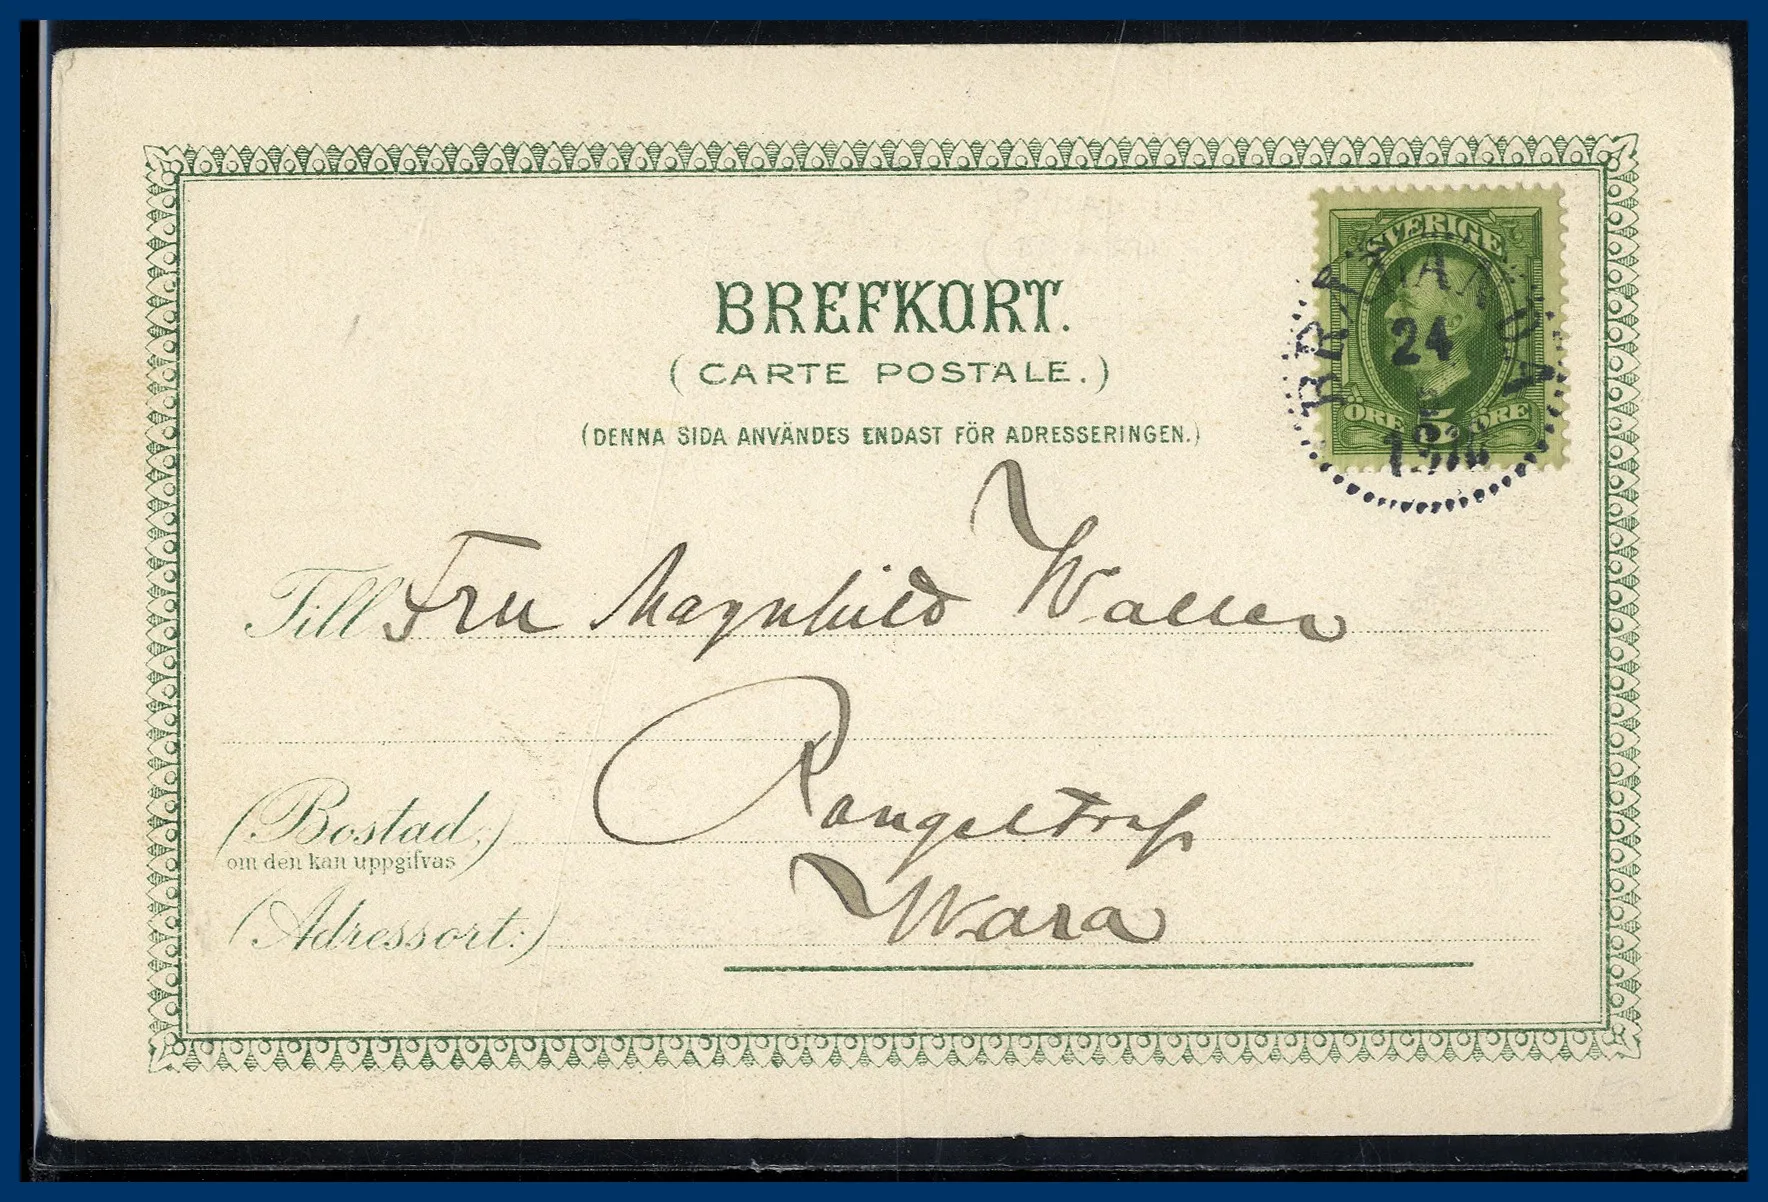 BREFKORT.
(CARTE POSTALE.)
(DENNA SIDA ANVÄNDES ENDAST FÖR ADRESSERINGEN.)
SVERIGE
24
5
ÖRE 5 ÖRE
Till Fru Magnhild Waller
(Bostad,)
om den kan uppgifvas
(Adressort:) Wara